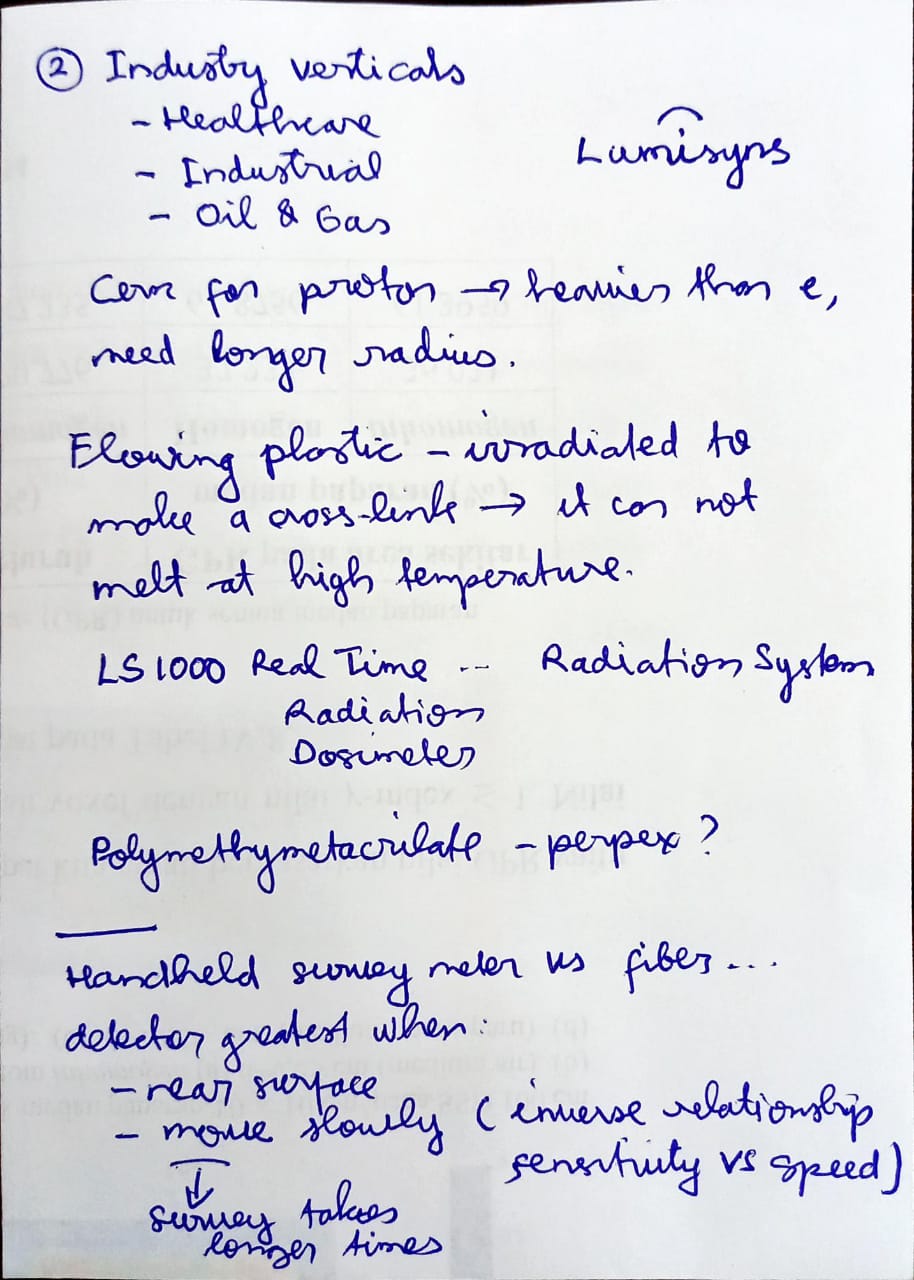 ② Industry verticals
- Healthcare
Lumisyns
- Industrial
- Oil & Gas
Cern for proton → heavier than e,
need longer radius.
Flowing plastic - irradiated to
make a cross-link → it can not
melt at high temperature.
LS 1000 Real Time -- Radiation System
Radiation
Dosimeter
Polymethymetacrilate - perpex ?
Handheld survey meter vs fiber...
detector greatest when:
- near surface
- move slowly (inverse relationship
sensitivity vs speed)
↓
survey takes
longer times